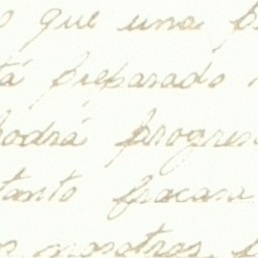 o que una p
tá preparado
podrá progres
tanto fracasa
nosotros